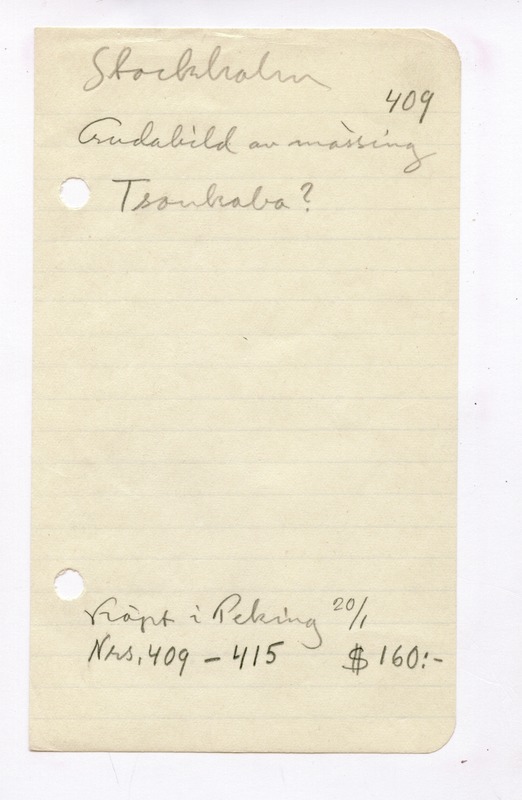 Stockholm
409
Gudabild av mässing
Tsonkaba?
Köpt i Peking 20/1
Nrs. 409 – 415 $ 160:-